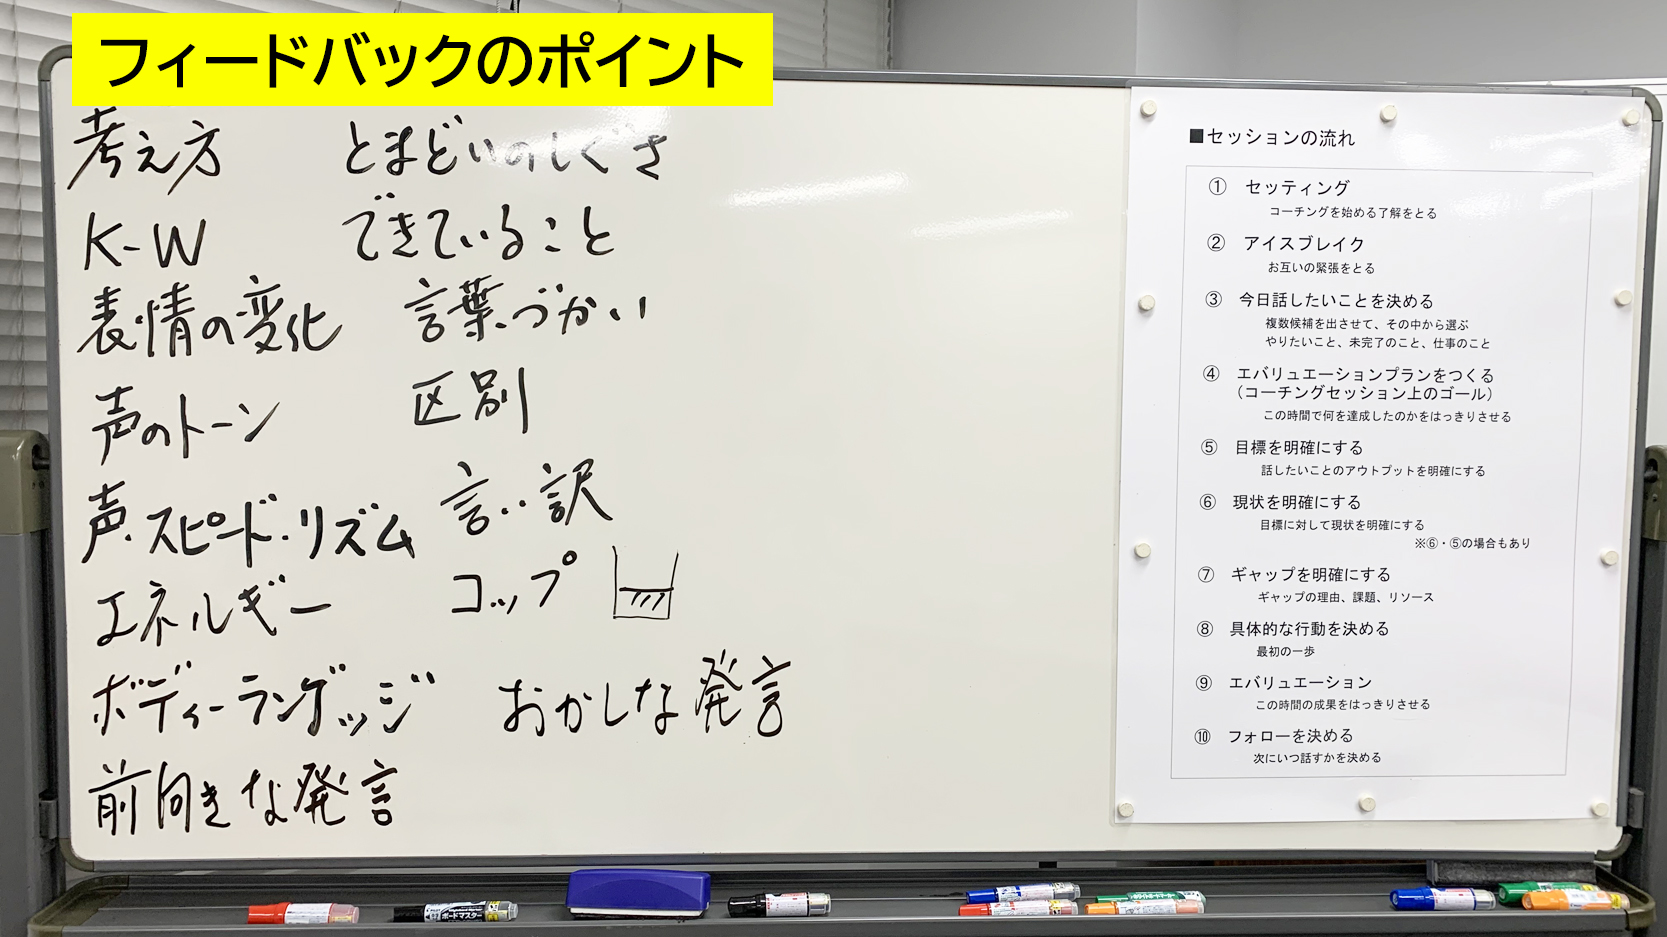 フィードバックのポイント
考え方
K-W
表情の変化
声のトーン
声・スピード・リズム
エネルギー
ボディーランゲッジ
前向きな発言
とまどいのしぐさ
できていること
言葉づかい
区別
言い訳
コップ
おかしな発言
■セッションの流れ
① セッティング
コーチングを始める了解をとる
② アイスブレイク
お互いの緊張をとる
③ 今日話したいことを決める
複数候補を出させて、その中から選ぶ
やりたいこと、未完了のこと、仕事のこと
④ エバリュエーションプランをつくる
（コーチングセッション上のゴール）
この時間で何を達成したのかをはっきりさせる
⑤ 目標を明確にする
話したいことのアウトプットを明確にする
⑥ 現状を明確にする
目標に対して現状を明確にする
※⑥・⑤の場合もあり
⑦ ギャップを明確にする
ギャップの理由、課題、リソース
⑧ 具体的な行動を決める
最初の一歩
⑨ エバリュエーション
この時間の成果をはっきりさせる
⑩ フォローを決める
次にいつ話すかを決める
ボードマスター